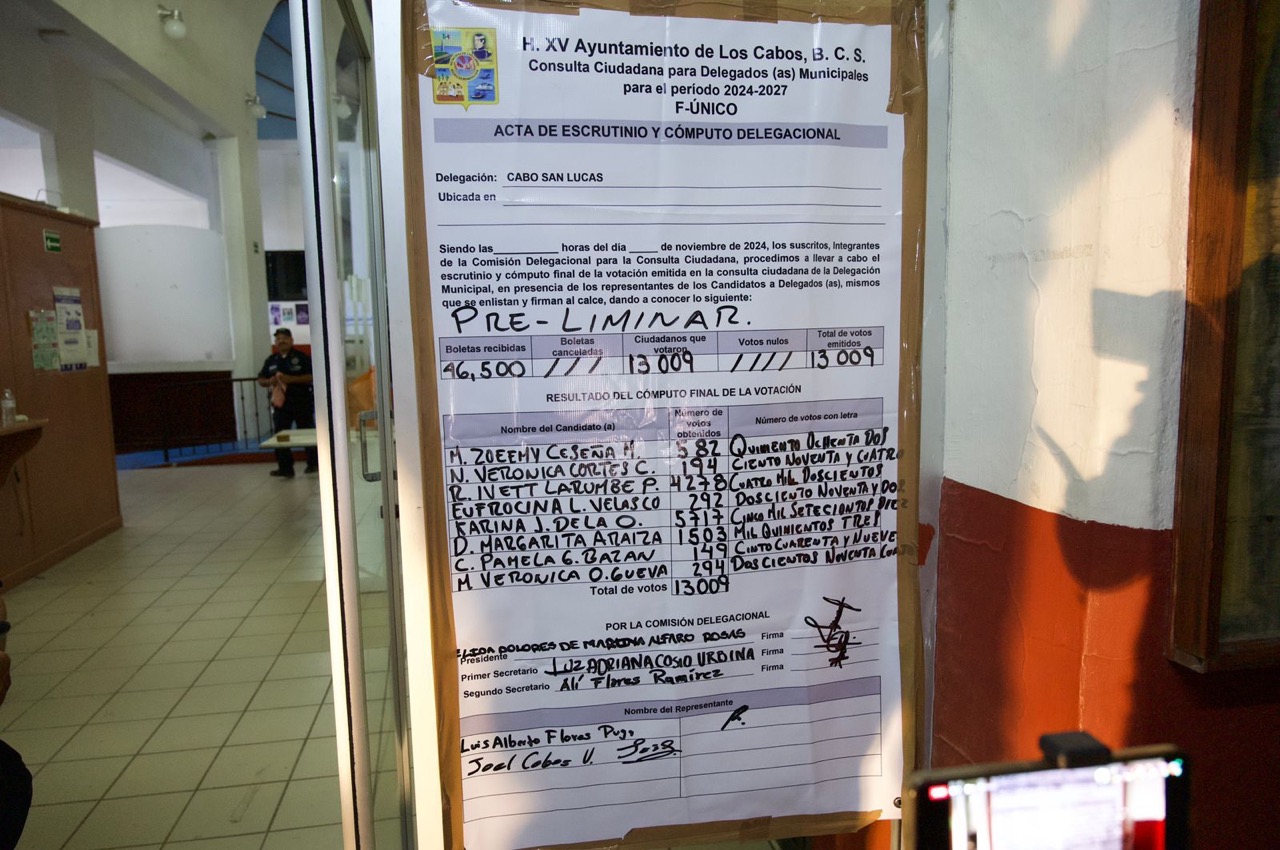 H. XV Ayuntamiento de Los Cabos, B. C. S.
Consulta Ciudadana para Delegados (as) Municipales
para el período 2024-2027
F-ÚNICO
ACTA DE ESCRUTINIO Y CÓMPUTO DELEGACIONAL
Delegación: CABO SAN LUCAS
Ubicada en
Siendo las_________ horas del día _____ de noviembre de 2024, los suscritos, Integrantes
de la Comisión Delegacional para la Consulta Ciudadana, procedimos a llevar a cabo el
escrutinio y cómputo final de la votación emitida en la consulta ciudadana de la Delegación
Municipal, en presencia de los representantes de los Candidatos a Delegados (as), mismos
que se enlistan y firman al calce, dando a conocer lo siguiente:
PRE-LIMINAR.
Boletas recibidas Boletas canceladas Ciudadanos que votaron Votos nulos Total de votos emitidos
46,500 /// 13 009 //// 13 009
RESULTADO DEL CÓMPUTO FINAL DE LA VOTACIÓN
Nombre del Candidato (a) Número de votos obtenidos Número de votos con letra
M. ZOEEMY CESEÑA M. 582 QUIMENTO OCHENTA DOS
N. VERONICA CORTES C. 194 CIENTO NOVENTA Y CUATRO
R. IVETT LARUMBE P. 4278 CUATRO MIL DOSCIENTOS
EUFROCINA L. VELASCO 292 DOSCIENTO NOVENTA Y DOS
KARINA J. DE LA O. 5717 CINCO MIL SETECIONTOS DIEZ
D. MARGARITA ARAIZA 1503 MIL QUINIENTOS TRES
C. PAMELA G. BAZAN 149 CINTO CUARENTA Y NUEVE
M VERONICA O. GUEVA 294 DOSCIENTOS NOVENTA
Total de votos 13.009
POR LA COMISIÓN DELEGACIONAL
Presidente ELIDA DOLORES DE MARTINA ALFARO ROSAS Firma
Primer Secretario LUZ ADRIANA COSIO URBINA Firma
Segundo Secretario Alí Flores Ramírez Firma
Nombre del Representante
Luis Alberto Flores Pugo
Joel Cobos V.